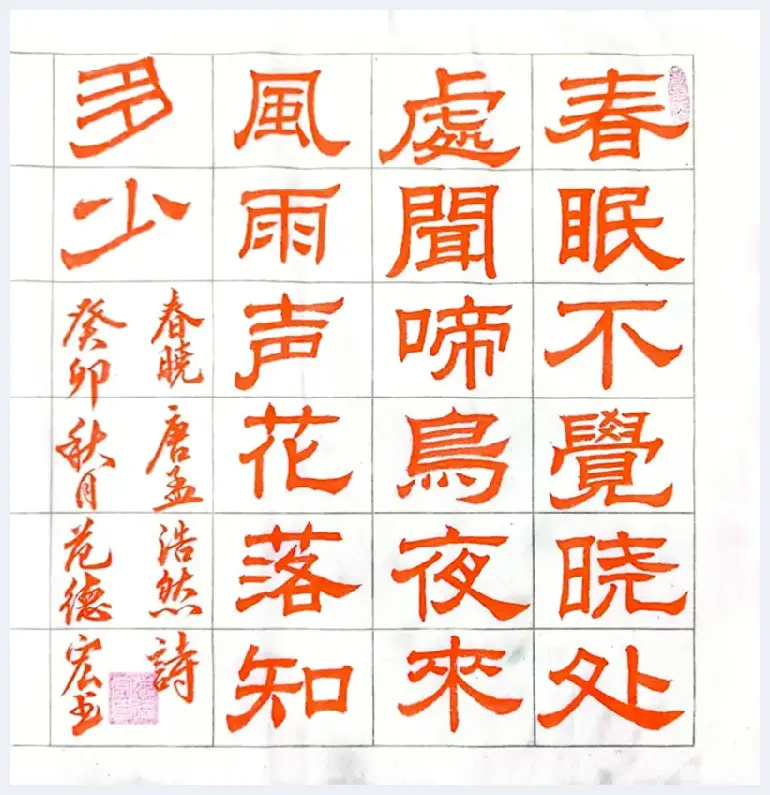 春眠不覺晓处
處聞啼鳥夜來
風雨声花落知
多少
春晓 唐孟浩然詩
癸卯秋月范德宏书